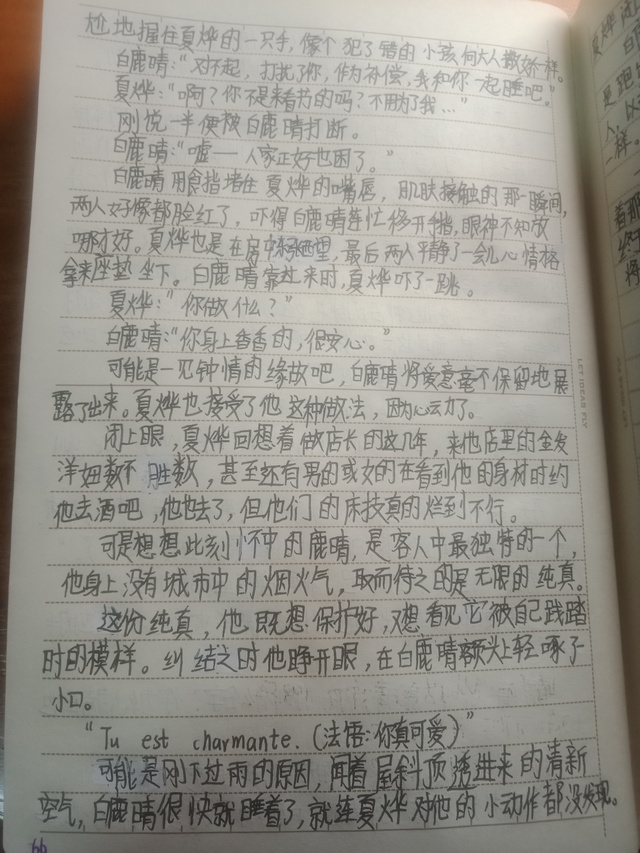 尬地握住夏烨的一只手，像个犯了错的小孩向大人撒娇一样。
白鹿晴："对不起，打扰了你，作为补偿，我和你一起睡吧。"
夏烨："啊？你不是来看书的吗？不用为了我…"
刚说一半便被白鹿晴打断。
白鹿晴："嘘——人家正好也困了。"
白鹿晴用食指堵住夏烨的嘴唇，肌肤接触的那一瞬间，
两人好像都脸红了，吓得白鹿晴连忙移开手指，眼神不知放
哪才好。夏烨也是在房中，最后两人平静了一会儿心情格
拿来座垫坐下。白鹿晴靠过来时，夏烨吓了一跳。
夏烨："你做什么？"
白鹿晴："你身上香香的，很安心。"
可能是一见钟情的缘故吧，白鹿晴将爱意毫不保留地展
露了出来。夏烨也接受了他这种做法，因为心动了。
闭上眼，夏烨回想着做店长的这几年，来他店里的金发
洋妞数不胜数，甚至还有男的或女的在看到他的身材时约
他去酒吧，他也去了，但他们的床技真的烂到不行。
可是想想此刻怀中的鹿晴，是客人中最独特的一个，
他身上没有城市中的烟火气，取而待之的是无限的纯真。
这份纯真，他既想保护好，又想看见它被自己践踏
时的模样。纠结之时他睁开眼，在白鹿晴额头上轻啄了
小口。
"Tu est charmante.(法语：你真可爱)"
可能是刚下过雨的原因，闻着屋斜顶透进来的清新
空气，白鹿晴很快就睡着了，就连夏烨对他的小动作都没发现。
66
LET IDEAS FLY